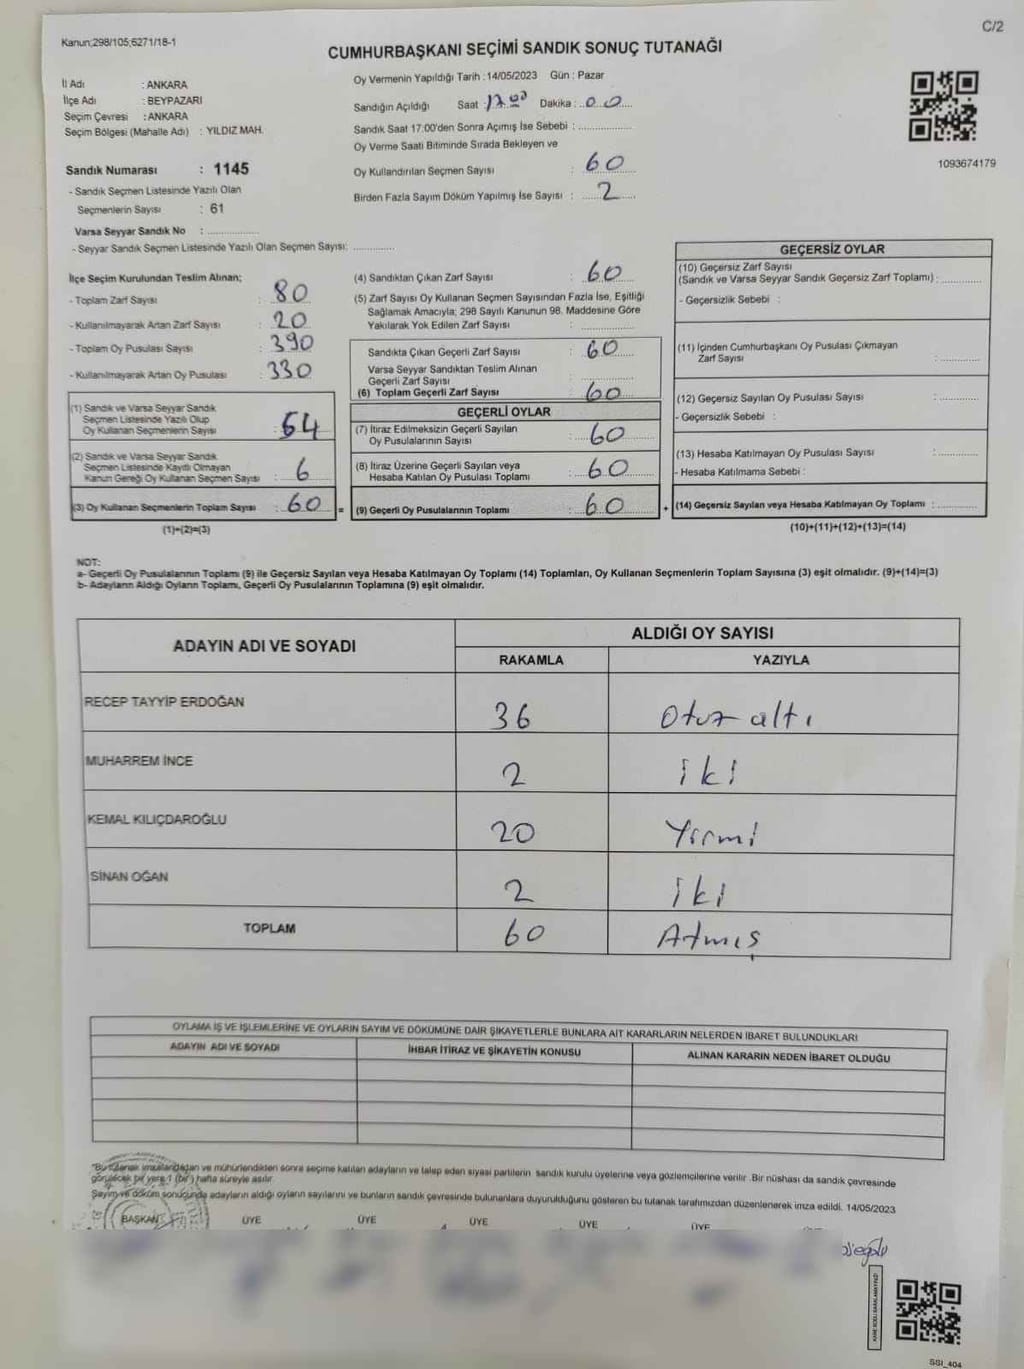 C/2
Kanun;298/105;6271/18-1
CUMHURBAŞKANI SEÇİMİ SANDIK SONUÇ TUTANAĞI
İl Adı : ANKARA
İlçe Adı : BEYPAZARI
Seçim Çevresi : ANKARA
Seçim Bölgesi (Mahalle Adı) : YILDIZ MAH.
Sandık Numarası : 1145
- Sandık Seçmen Listesinde Yazılı Olan
Seçmenlerin Sayısı : 61
Varsa Seyyar Sandık No : ..................
- Seyyar Sandık Seçmen Listesinde Yazılı Olan Seçmen Sayısı: ..............
Oy Vermenin Yapıldığı Tarih : 14/05/2023 Gün : Pazar
Sandığın Açıldığı Saat : 17.00 Dakika : 00
Sandık Saat 17:00'den Sonra Açımış İse Sebebi : ..................
Oy Verme Saati Bitiminde Sırada Bekleyen ve
Oy Kullandırılan Seçmen Sayısı : 60
Birden Fazla Sayım Döküm Yapılmış İse Sayısı : 2
1093674179
İlçe Seçim Kurulundan Teslim Alınan;
- Toplam Zarf Sayısı : 80
- Kullanılmayarak Artan Zarf Sayısı : 20
- Toplam Oy Pusulası Sayısı : 390
- Kullanılmayarak Artan Oy Pusulası : 330
(1) Sandık ve Varsa Seyyar Sandık
Seçmen Listesinde Yazılı Olup
Oy Kullanan Seçmenlerin Sayısı : 54
(2) Sandık ve Varsa Seyyar Sandık
Seçmen Listesinde Kayıtlı Olmayan
Kanun Gereği Oy Kullanan Seçmen Sayısı : 6
(3) Oy Kullanan Seçmenlerin Toplam Sayısı : 60
(1)+(2)=(3)
(4) Sandıktan Çıkan Zarf Sayısı : 60
(5) Zarf Sayısı Oy Kullanan Seçmen Sayısından Fazla İse, Eşitliği
Sağlamak Amacıyla; 298 Sayılı Kanunun 98. Maddesine Göre
Yakılarak Yok Edilen Zarf Sayısı : ..................
Sandıkta Çıkan Geçerli Zarf Sayısı : 60
Varsa Seyyar Sandıktan Teslim Alınan
Geçerli Zarf Sayısı : ..................
(6) Toplam Geçerli Zarf Sayısı : 60
GEÇERLİ OYLAR
(7) İtiraz Edilmeksizin Geçerli Sayılan
Oy Pusulalarının Sayısı : 60
(8) İtiraz Üzerine Geçerli Sayılan veya
Hesaba Katılan Oy Pusulası Toplamı : 60
= (9) Geçerli Oy Pusulalarının Toplamı : 60 +
GEÇERSİZ OYLAR
(10) Geçersiz Zarf Sayısı
(Sandık ve Varsa Seyyar Sandık Geçersiz Zarf Toplamı) : ..............
- Geçersizlik Sebebi :
(11) İçinden Cumhurbaşkanı Oy Pusulası Çıkmayan
Zarf Sayısı : ..............
(12) Geçersiz Sayılan Oy Pusulası Sayısı : ..............
- Geçersizlik Sebebi :
(13) Hesaba Katılmayan Oy Pusulası Sayısı : ..............
- Hesaba Katılmama Sebebi :
(14) Geçersiz Sayılan veya Hesaba Katılmayan Oy Toplamı : ..............
(10)+(11)+(12)+(13)=(14)
NOT:
a- Geçerli Oy Pusulalarının Toplamı (9) ile Geçersiz Sayılan veya Hesaba Katılmayan Oy Toplamı (14) Toplamları, Oy Kullanan Seçmenlerin Toplam Sayısına (3) eşit olmalıdır. (9)+(14)=(3)
b- Adayların Aldığı Oyların Toplamı, Geçerli Oy Pusulalarının Toplamına (9) eşit olmalıdır.
ADAYIN ADI VE SOYADI ALDIĞI OY SAYISI
RAKAMLA YAZIYLA
RECEP TAYYİP ERDOĞAN 36 Otuz altı
MUHARREM İNCE 2 iki
KEMAL KILIÇDAROĞLU 20 Yirmi
SİNAN OĞAN 2 iki
TOPLAM 60 Atmış
OYLAMA İŞ VE İŞLEMLERİNE VE OYLARIN SAYIM VE DÖKÜMÜNE DAİR ŞİKAYETLERLE BUNLARA AİT KARARLARIN NELERDEN İBARET BULUNDUKLARI
ADAYIN ADI VE SOYADI İHBAR İTİRAZ VE ŞİKAYETİN KONUSU ALINAN KARARIN NEDEN İBARET OLDUĞU
"Bu tutanak imzalandıktan ve mühürlendikten sonra seçime katılan adayların ve talep eden siyasi partilerin sandık kurulu üyelerine veya gözlemcilerine verilir .Bir nüshası da sandık çevresinde
görülecek bir yere 1 (bir) hafta süreyle asılır.
Sayım ve döküm sonucunda adayların aldığı oyların sayılarını ve bunların sandık çevresinde bulunanlara duyurulduğunu gösteren bu tutanak tarafımızdan düzenlenerek imza edildi. 14/05/2023
BAŞKAN ÜYE ÜYE ÜYE ÜYE ÜYE
SSI_404